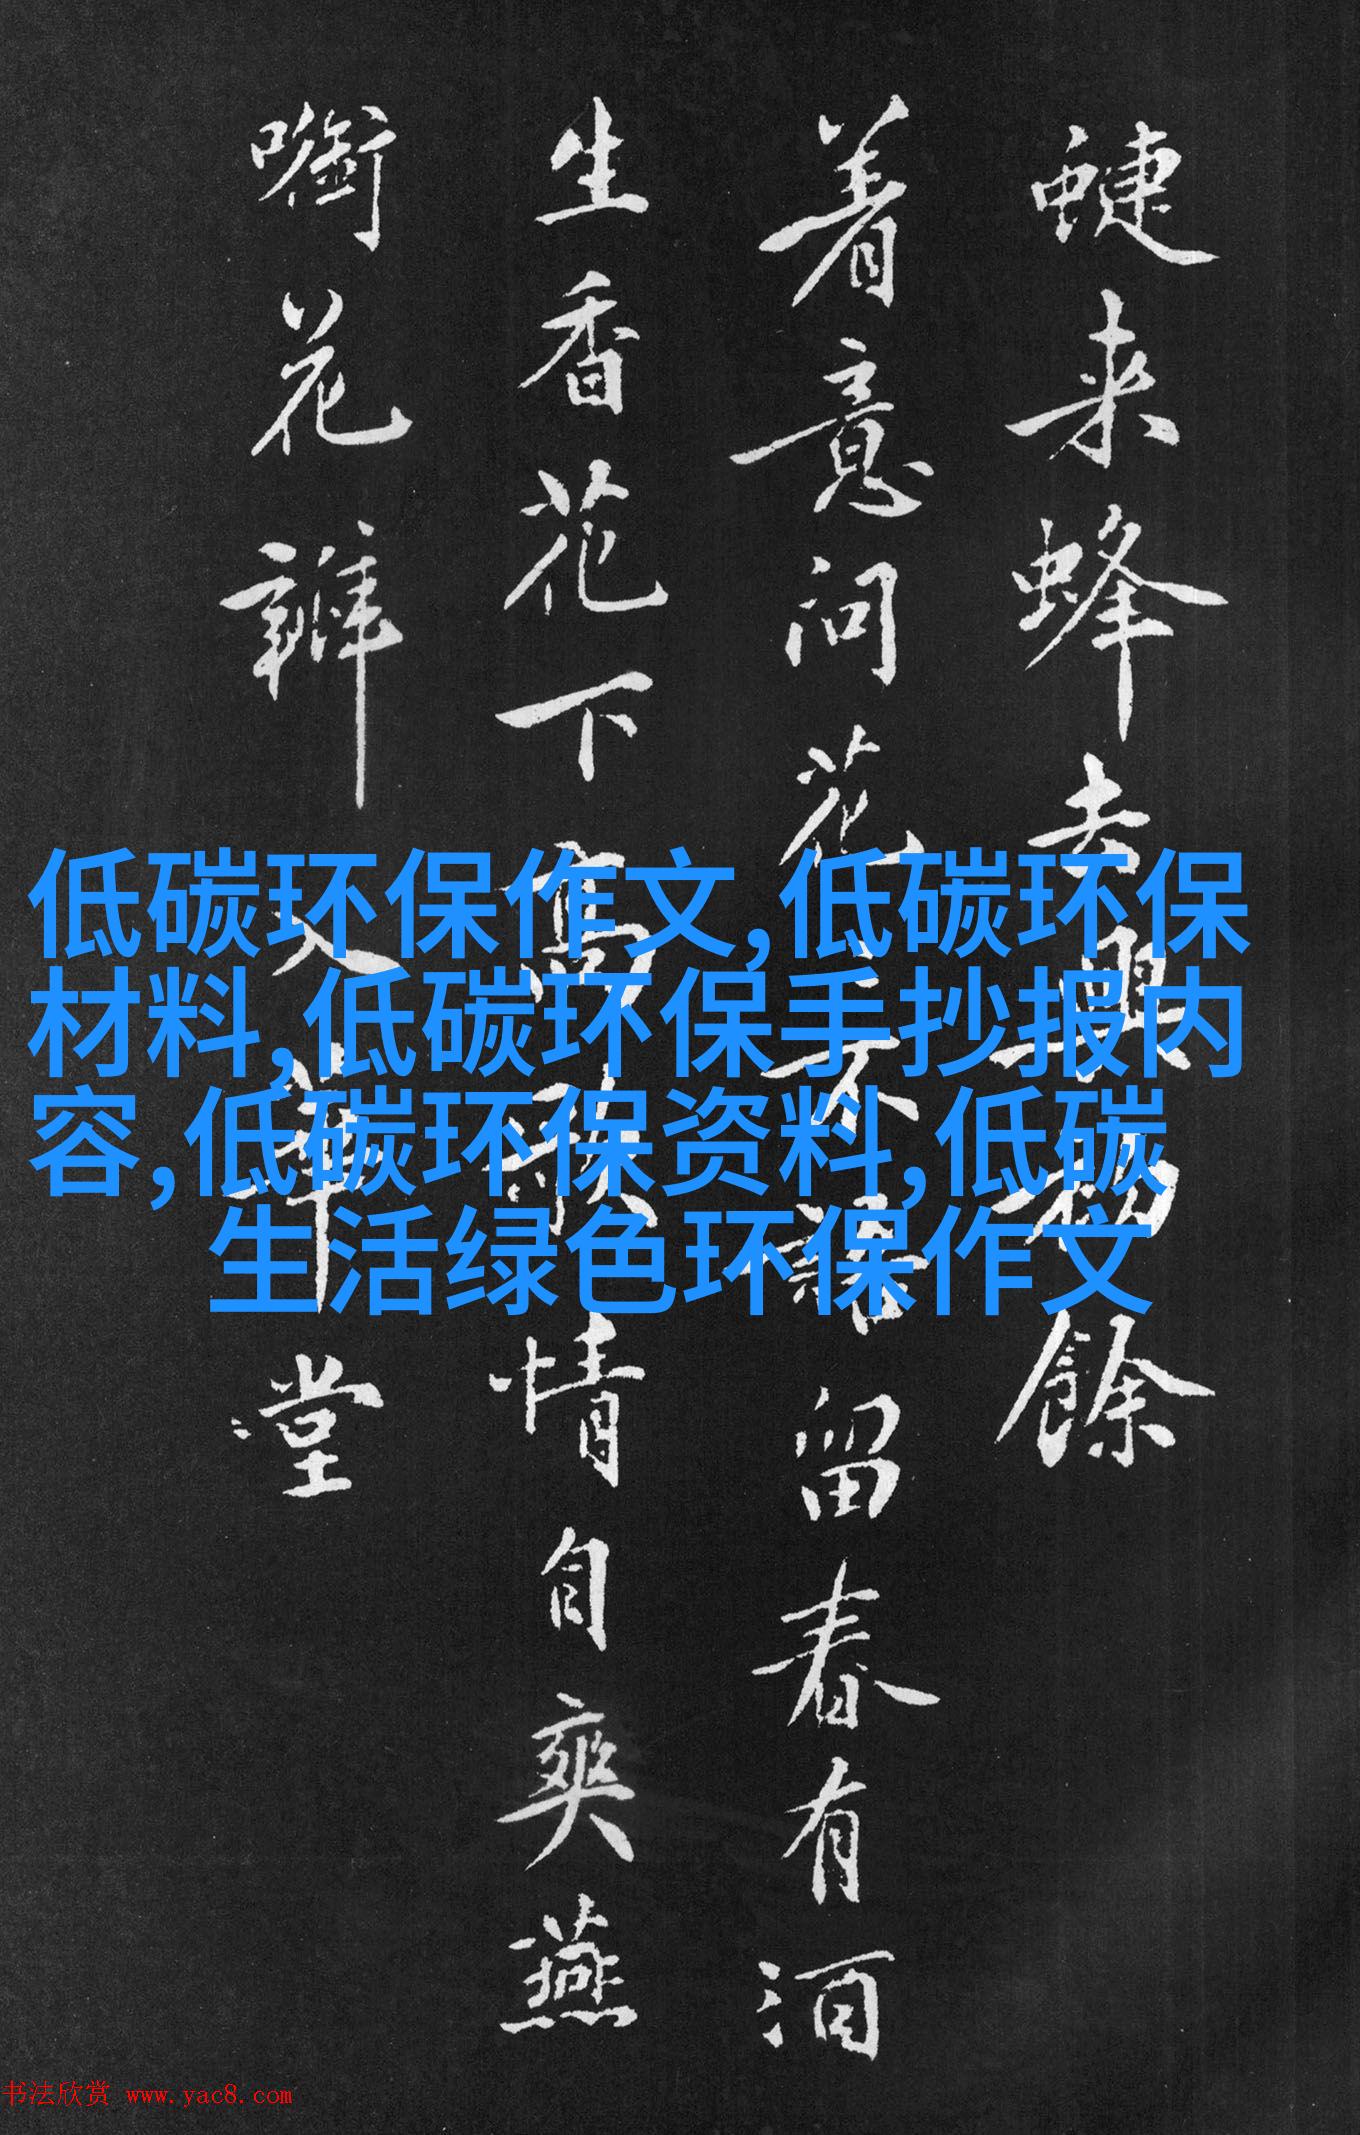 蜨来蜂去興初餘
着意问花〻不語留春有酒
生香花下高歌情自爽燕
㘅花瓣入華堂
低碳环保作文,低碳环保
材料,低碳环保手抄报内
容,低碳环保资料,低碳
生活绿色环保作文
书法欣赏 www.yac8.com